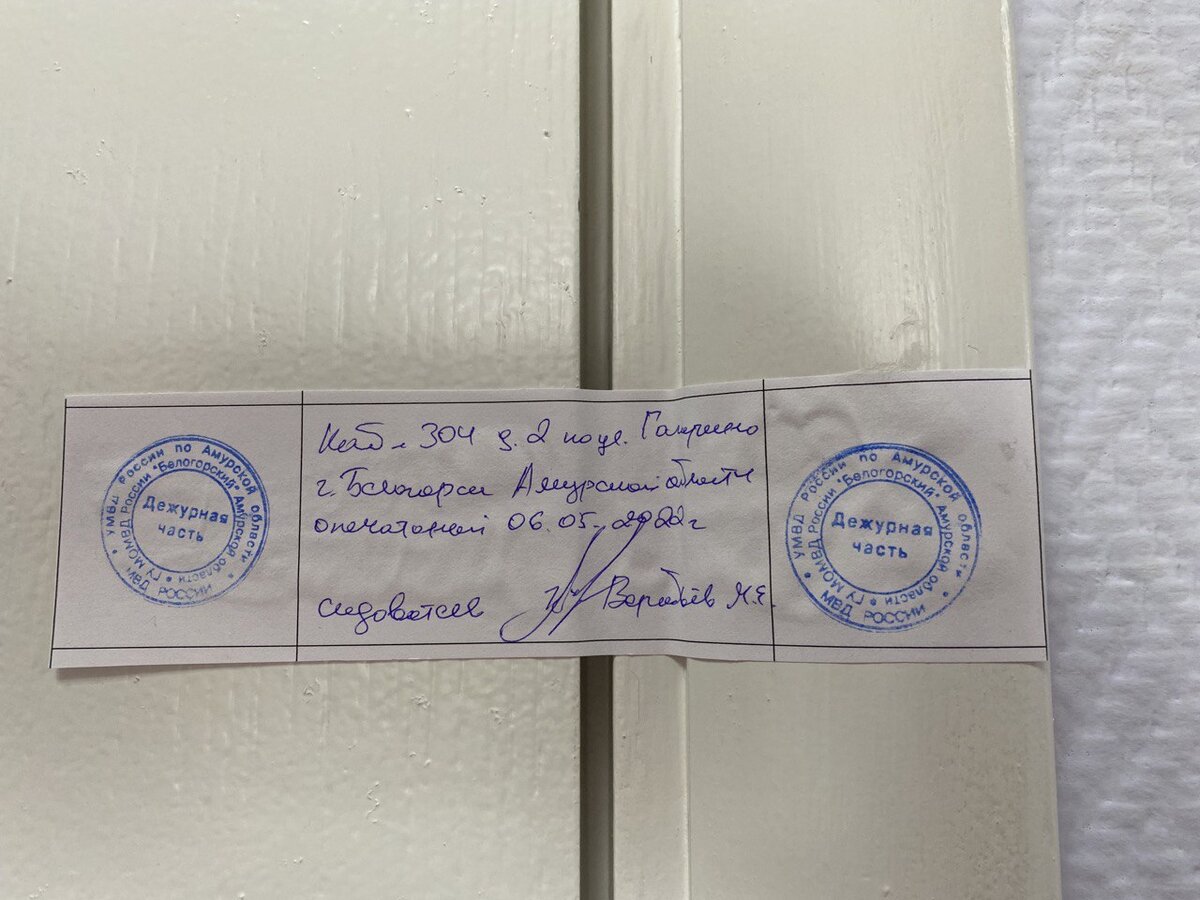 УМВД России по Амурской области
МОМВД России "Белогорский" Амурской области
ГУ
МВД РОССИИ
Дежурная
часть
Каб. 304 д. 2 по ул. Гагарина
г. Белогорск Амурской области
опечатанный 06.05.2022г
следователь Воробьёв М.Е.
УМВД России по Амурской области
МОМВД России "Белогорский" Амурской области
ГУ
МВД РОССИИ
Дежурная
часть